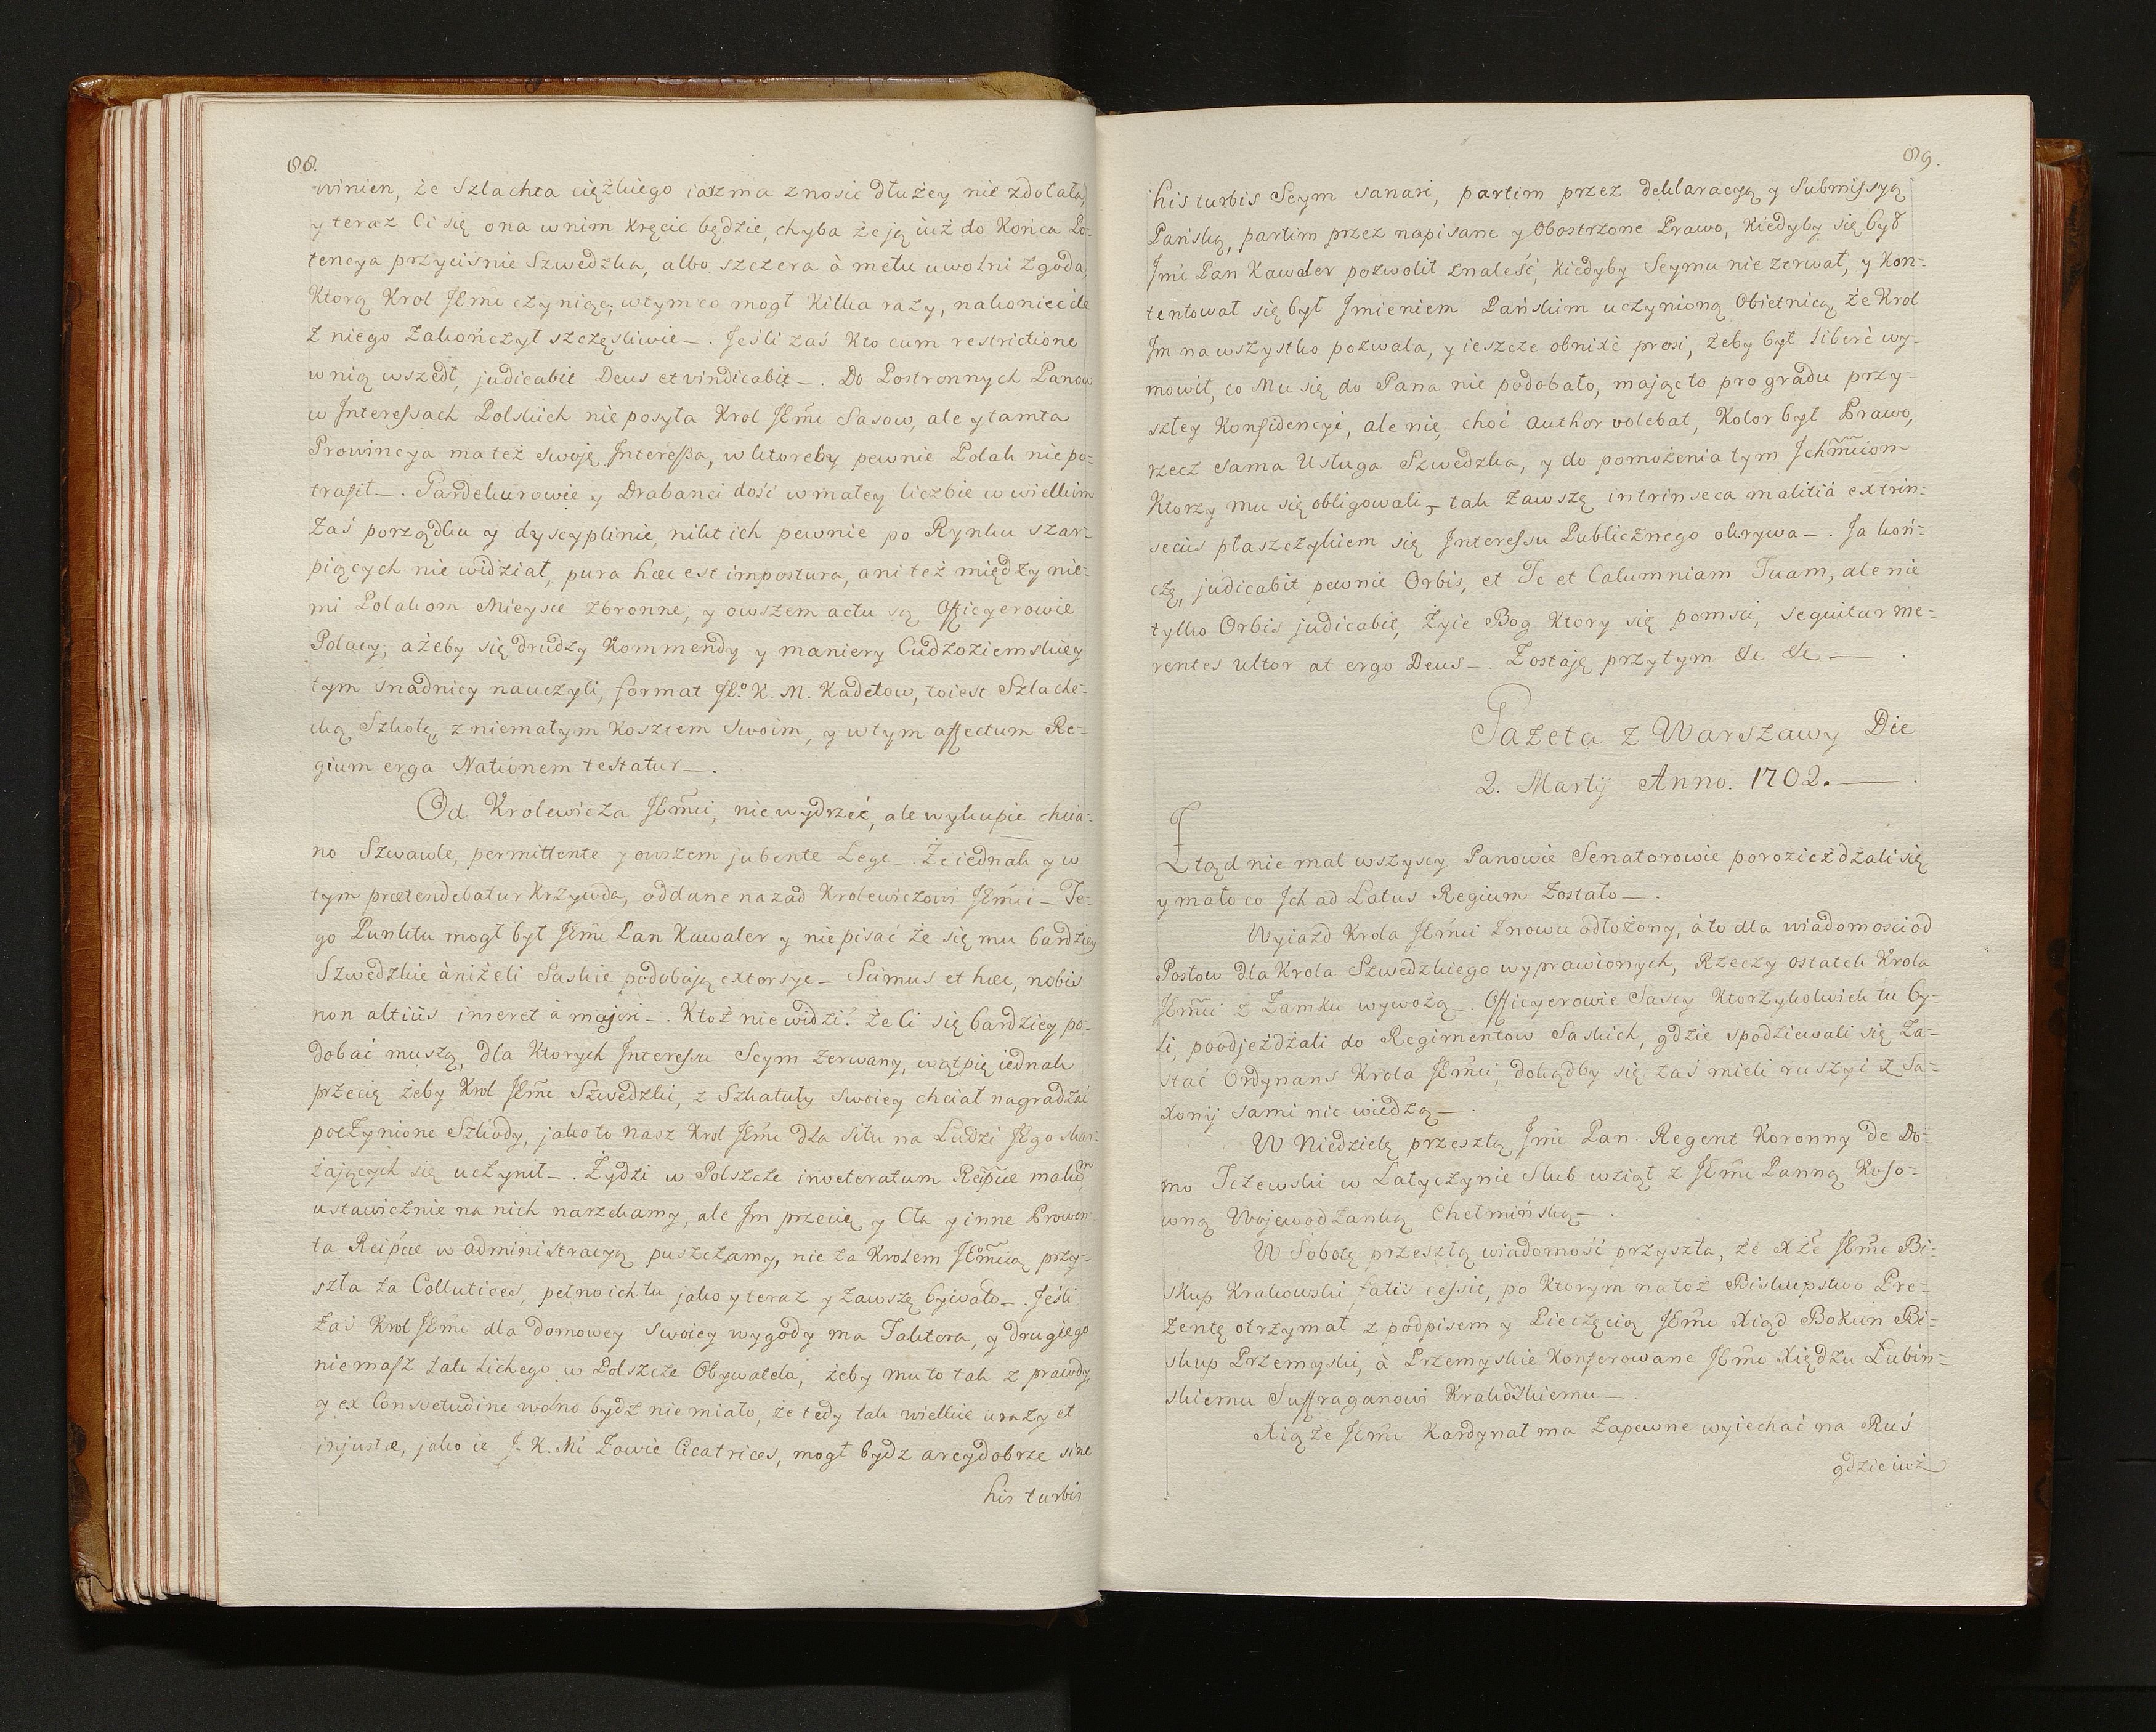 88.
winien, że Szlachta ciężkiego iarzma znosic dłużey nie zdołała,
y teraz Ci się ona w nim kręcic będzie, chyba że ją iuż do Końca Po-
tencya przycisnie Szwedzka, albo szczera à metu uwolni zgoda,
Ktorą Krol JEm̃c czyniąc, w tym co mogł kilka razy, nakoniec ile
z niego zakończył szczęsliwie —. Jeśli zaś Kto cum restrictione
w nią wszedł, judicabit Deus et vindicabit —. Do Postronnych Panow
w Interessach Polskich nie posyła Krol JEm̃c Sasow, ale y tamta
Prowincya ma też swoję Interessa, w ktoreby pewnie Polak nie po-
trafił —. Gardekurowie y Drabanci dość w małey liczbie w wielkim
zaś porządku y dyscyplinie, nikt ich pewnie po Rynku szar-
piących nie widział, pura hæc est impostura, ani też między nie-
mi Polakom Mieysce zbronne, y owszem actu są Officyerowie
Polacy, ażeby się drudzy Kommendy y maniery Cudzoziemskiey
tym snadniey nauczyli, format JE.º K. M. Kadetow, to iest Szlache-
cką Szkołę, z niemałym Kosztem swoim, y w tym affectum Re-
gium erga Nationem testatur —.
Od Krolewicza JEm̃ci, nie wydrzeć, ale wykupic chcia-
no Szwaule, permittente y owszem jubente Lege —. Że iednak y w
tym prætendebatur krzywda, oddane nazad Krolewiczowi JEm̃ci — Te-
go Punktu mogł był JEm̃c Pan Kawaler y nie pisać że się mu bardziey
Szwedzkie àniżeli Saskie podobają extorsye — Scimus et hæc, nobis
non altiùs inseret à majori —. Ktoż nie widzi? że Ci się bardziey po-
dobać muszą, dla Ktorych Interessu Seym zerwany, wątpię iednak
przecię żeby Krol JEm̃c Szwedzki, z Szkatuły swoiey chciał nagradzać
poczynione Szkody, jako to nasz Krol JEm̃c dla siłu na Ludzi JEgo skar-
żających się uczynił —. Żydzi w Polszcze inveteratum Reip̃ue malum
ustawicznie na nich narzekamy, ale Im przecię y Cła y inne Prowen-
ta Reip̃ue w administracyą puszczamy, nie za Krolem JEm̃cią przy-
szła ta Colluvices, pełno ich tu jako y teraz y zawszę bywało —. Jeśli
zaś Krol JEm̃c dla domowey swoiey wygody ma Faktora, y drugiego
niemasz tak lichego w Polszcze Obywatela, żeby mu to tak z prawdy,
y ex Consvetudine wolno bydz nie miało, że tedy tak wielkie urazy et
injustæ, jako ie J. K. Mć zowie Cicatrices, mogł bydz arcydobrze sine
his turbis
89.
his turbis Seym sanari, partim przez deklaracyą y Submissyą
Pańską, partim przez napisane y Obostrzone Prawo, kiedyby się był
Jm̃c Pan Kawaler pozwolił znaleść, kiedyby Seymu nie zerwał, y Kon-
tentował się był Imieniem Pańskim uczynioną Obietnicą, że Krol
Im na wszystko pozwala, y ieszcze obnixè prosi, żeby był liberè wy-
mowił, co Mu się do Pana nie podobało, mając to pro gradu przy-
szłey Konfidencyi, ale nie, choć author volebat, Kolor był Prawo,
rzecz sama Usługa Szwedzka, y do pomożenia tym Ichm̃ciom
Ktorzy mu się obligowali, tak zawszę intrinseca malitia extrin-
secùs płaszczykiem się Interessu Publicznego okrywa —. Ja koń-
czę, judicabit pewnie Orbis, et Te et Calumniam Tuam, ale nie
tylko Orbis judicabit, Żyie Bog Ktory się pomsci, sequitur me-
rentes ultor at ergo Deus —. Zostaję przy tym &c &c — .
Gazeta z Warszawy Die
2. Martij Anno. 1702. — .
Ztąd nie mal wszyscy Panowie Senatorowie porozieżdżali się
y mało co Ich ad Latus Regium zostało —.
Wyiazd Krola JEm̃ci znowu odłożony, à to dla wiadomosci od
Posłow dla Krola Szwedzkiego wyprawionych, Rzeczy ostatek Krola
JEm̃ci z Zamku wywożą —. Officyerowie Sascy Ktorzykolwiek tu by-
li, poodjeżdżali do Regimentow Saskich, gdzie spodziewali się za-
stać Ordynans Krola JEm̃ci, dokądby się zaś mieli ruszyć z Sa-
xonij sami nie wiedzą —.
W Niedzielę przeszłą Jm̃c Pan Regent Koronny de Do-
mo Tczewski w Latyczynie Slub wziął z JEm̃c Panną Koso-
wną Wojewodzanką Chełmińską —.
W Sobotę przeszłą wiadomość przyszła, że Xże JEm̃c Bi-
skup Krakowski fatis cessit, po Ktorym na toż Biskupstwo Pre-
zentę otrzymał z podpisem y Pieczęcią JEm̃c Xiąd Bokun Bi-
skup Przemyski, à Przemyskie Konferowane JEm̃o Xiędzu Łubin-
skiemu Suffraganowi Krakowskiemu —.
Xiąże JEm̃c Kardynał ma zapewne wyiechać na Ruś
gdzie iuż